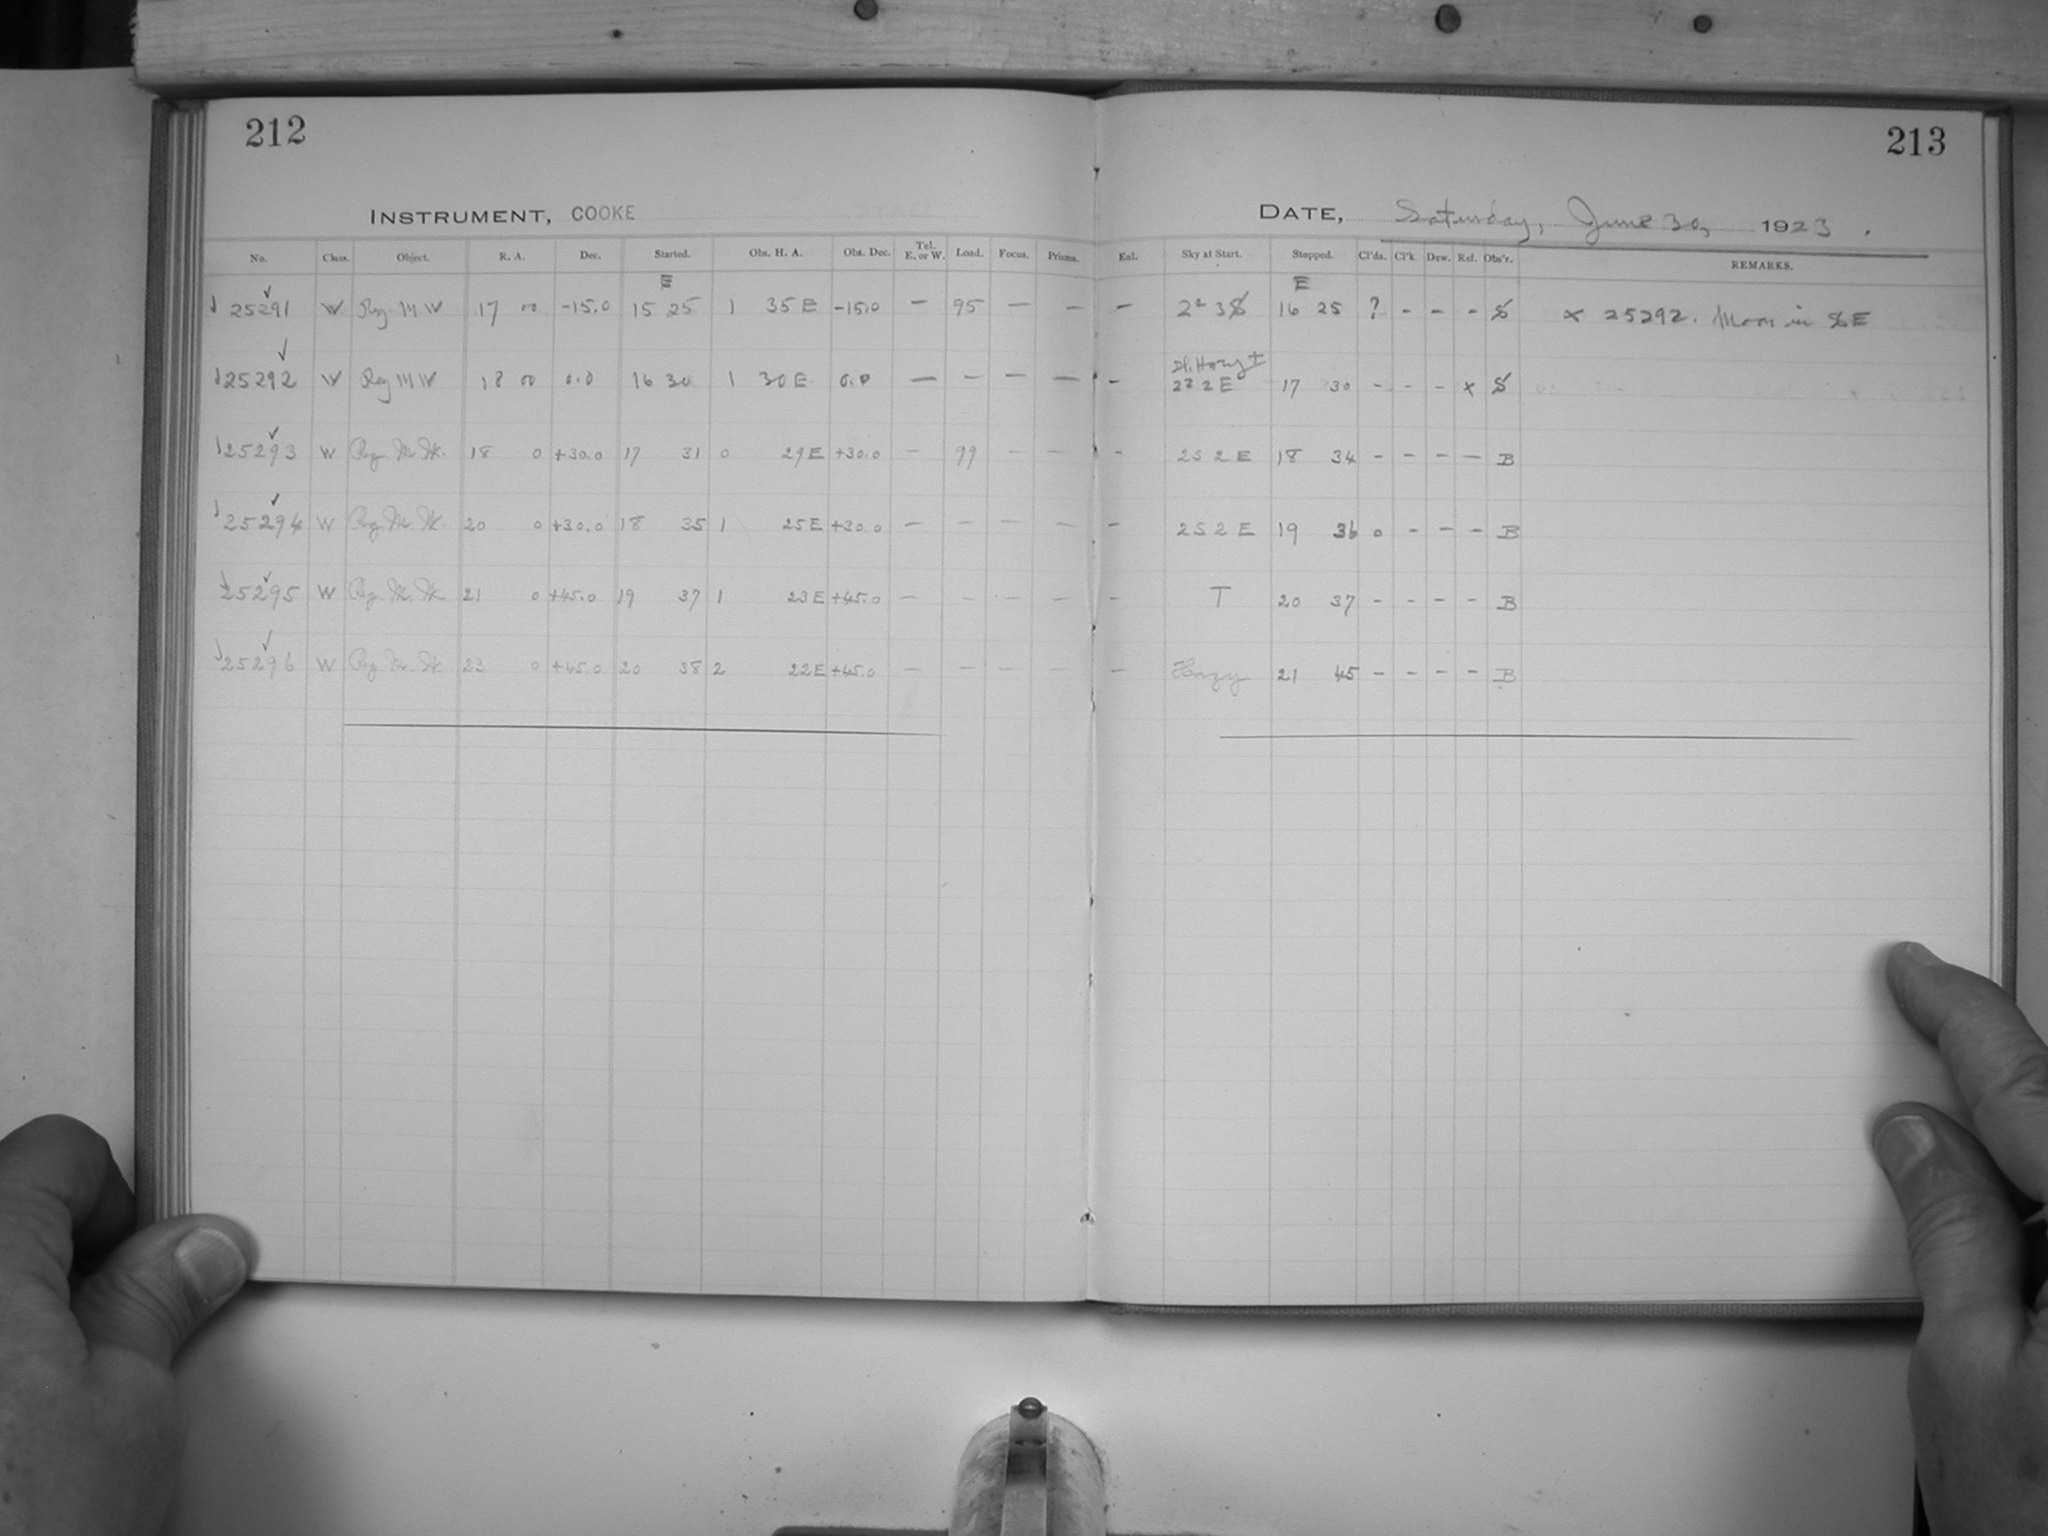 212
213
INSTRUMENT, COOKE
DATE, Saturday, June 30, 1923.
No. Class. Object. R. A. Dec. Started. Obs. H. A. Obs. Dec. Tel. E. or W. Load. Focus. Prisms. Eal. Sky at Start. Stopped. Cl'ds. Cl'k. Dew. Ref. Obs'r. REMARKS.
E E
25291 W Reg. M W 17 00 -15.0 15 25 1 35 E -15.0 — 95 — — — 16 25 ? - - - S x 25292. Moon in SE
25292 W Reg M W 18 00 0.0 16 30 1 30 E 0.0 — — — — - Hazy 2 E 17 30 - - - x S
25293 W Reg. M. W. 18 0 +30.0 17 31 0 29 E +30.0 — 99 — — - 2S 2 E 18 34 - - - — B
25294 W Reg. M. W. 20 0 +30.0 18 35 1 25 E +30.0 — — — — - 2S 2 E 19 36 0 - - - B
25295 W Reg. M. W. 21 0 +45.0 19 37 1 23 E +45.0 — — — — - T 20 37 - - - - B
25296 W Reg. M. W. 23 0 +45.0 20 38 2 22 E +45.0 — — — — - Hazy 21 45 - - - - B